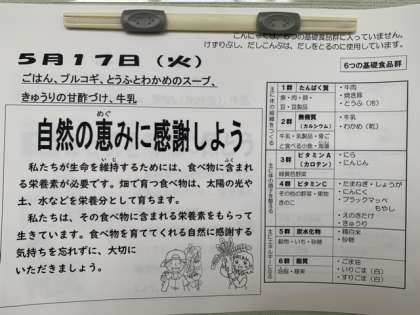 こんにゃくは、6つの基礎食品群に入っていません。
けずりぶし、だしこんぶは、だしをとるのに使用しています。
5月17日(火)
ごはん、プルコギ、とうふとわかめのスープ、
きゅうりの甘酢づけ、牛乳
自然の恵みに感謝しよう
めぐ
私たちが生命を維持するためには、食べ物に含ま
いじ
ふく
れる栄養素が必要です。畑で育つ食べ物は、太陽の光や
土、水などを栄養分として育ちます。
私たちは、その食べ物に含まれる栄養素をもらって
生きています。食べ物を育ててくれる自然に感謝する
気持ちを忘れずに、大切に
いただきましょう。
6つの基礎食品群
主に体の組織をつくる
1群 たんぱく質
魚・肉・卵
豆・豆製品
・牛肉
・焼き豚
・とうふ(冷)
2群 無機質
(カルシウム)
牛乳・乳製品・骨ご
と食べる小魚・海藻
・牛乳
・わかめ(乾)
主に体の調子を整える
3群 ビタミンA
(カロテン)
緑黄色野菜
・にら
・にんじん
4群 ビタミンC
その他の野菜・果物
きのこ
・たまねぎ・しょうが
・にんにく
・ブラックマッペ
もやし
・えのきたけ
・きゅうり
5群 炭水化物
穀物・いも・砂糖
・精白米
・砂糖
6群 脂質
油脂・種実
・ごま油
・いりごま(白)
・すりごま(白)